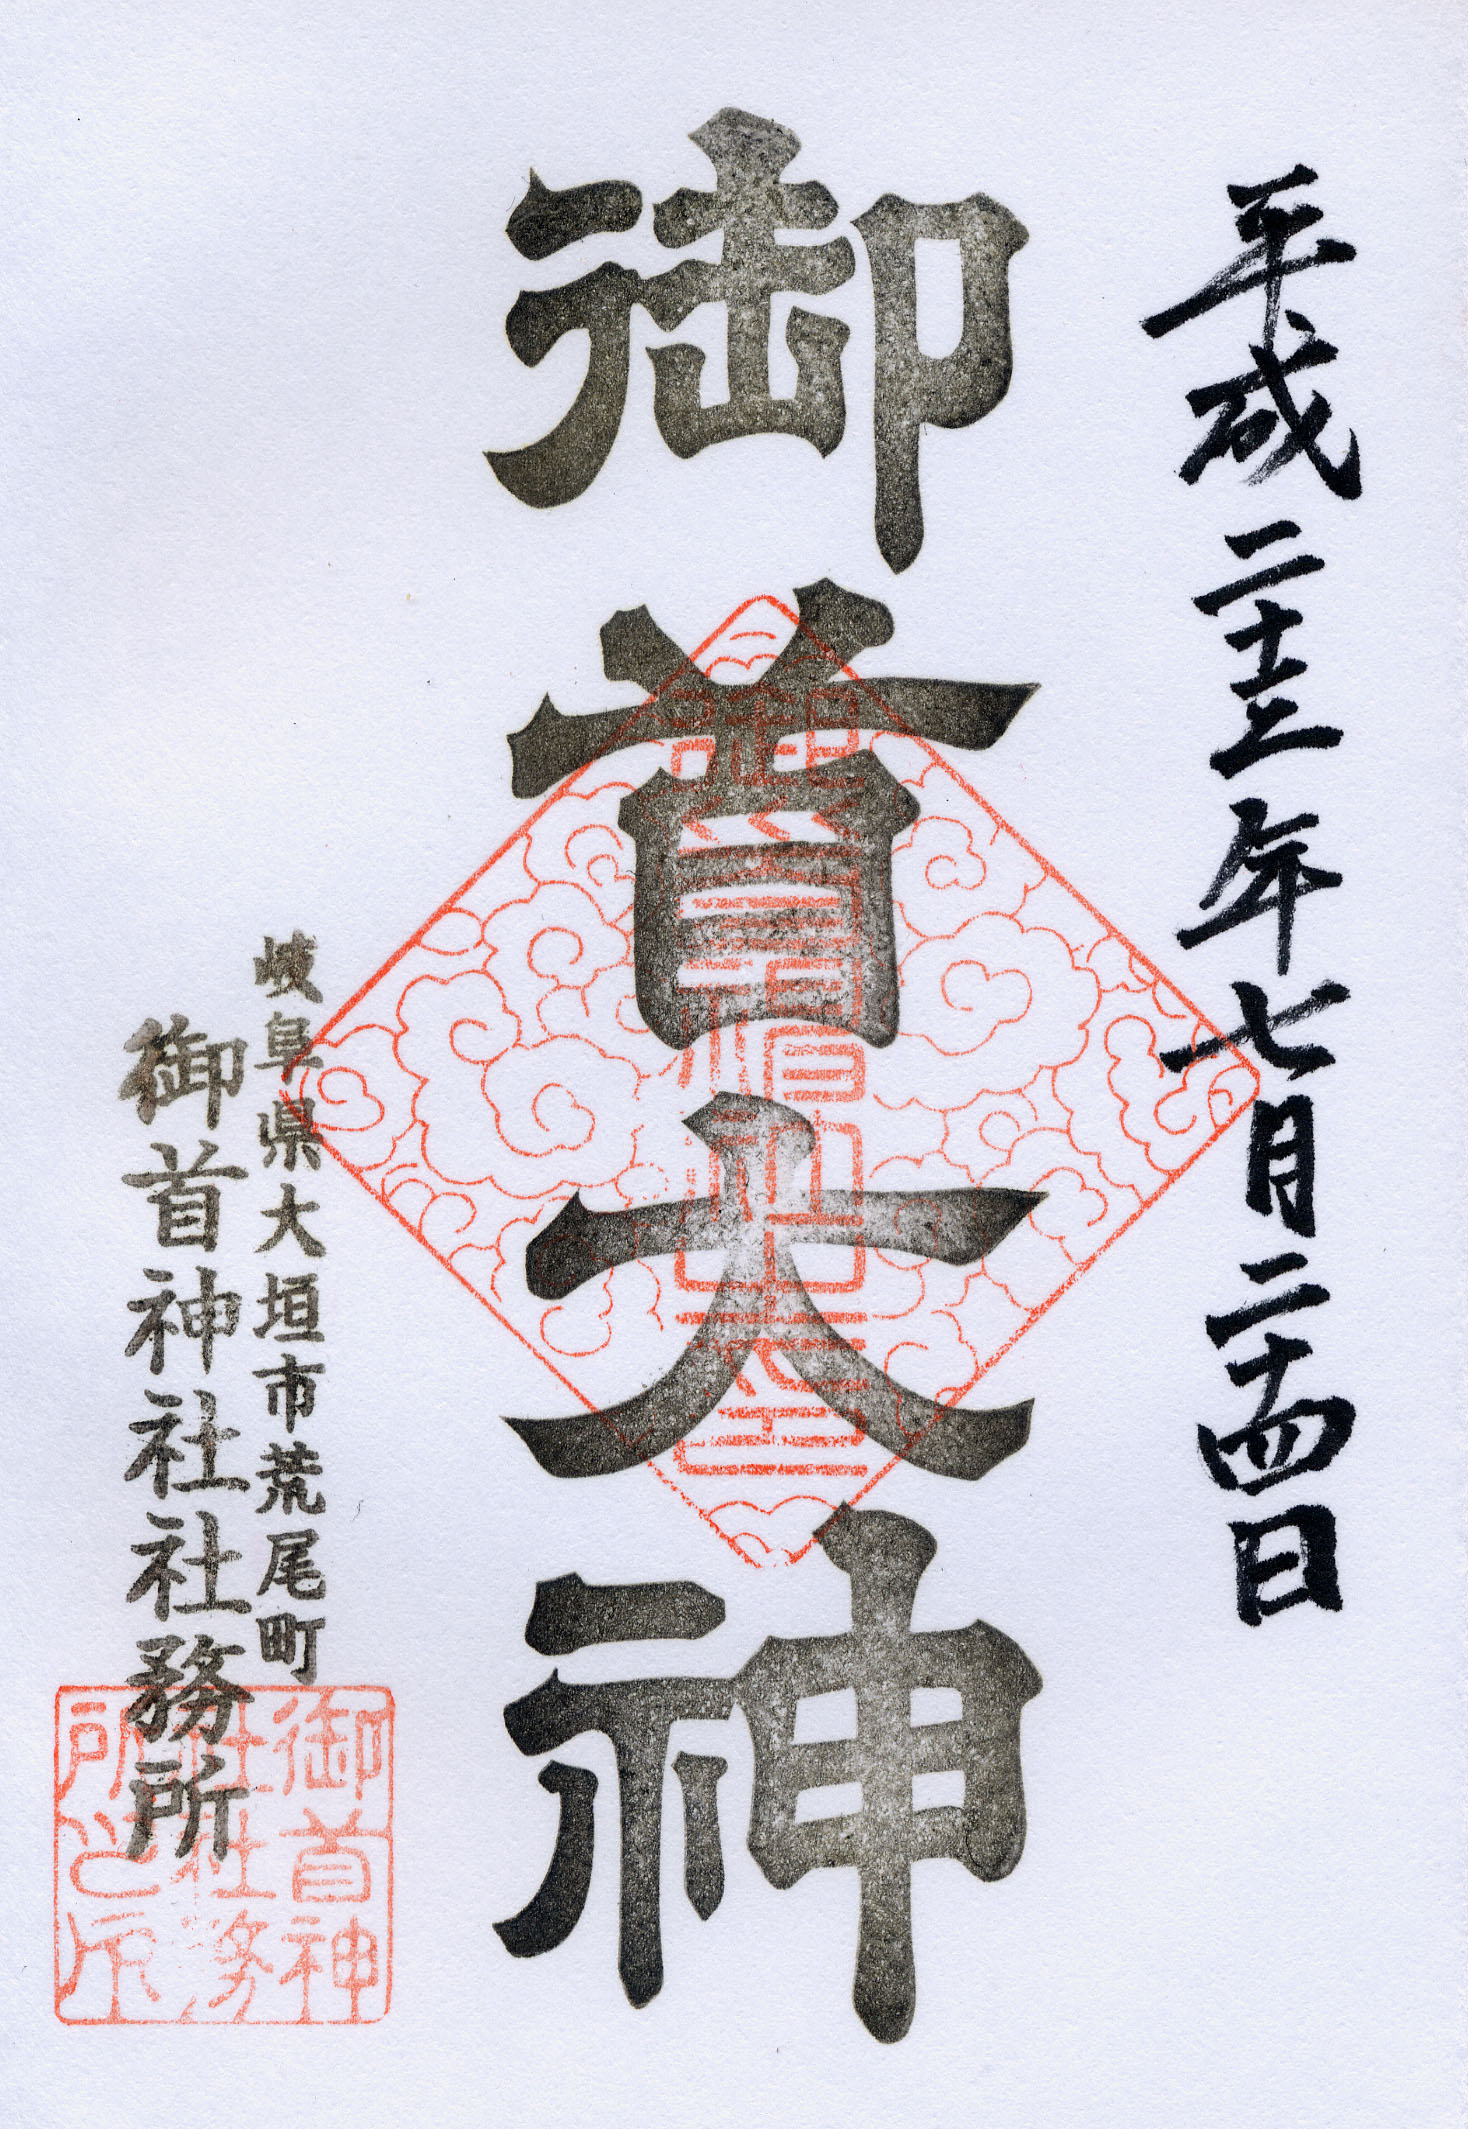 平成二十三年七月二十四日
御首大神
岐阜県大垣市荒尾町
御首神社社務所
御首神
社社務
所之印